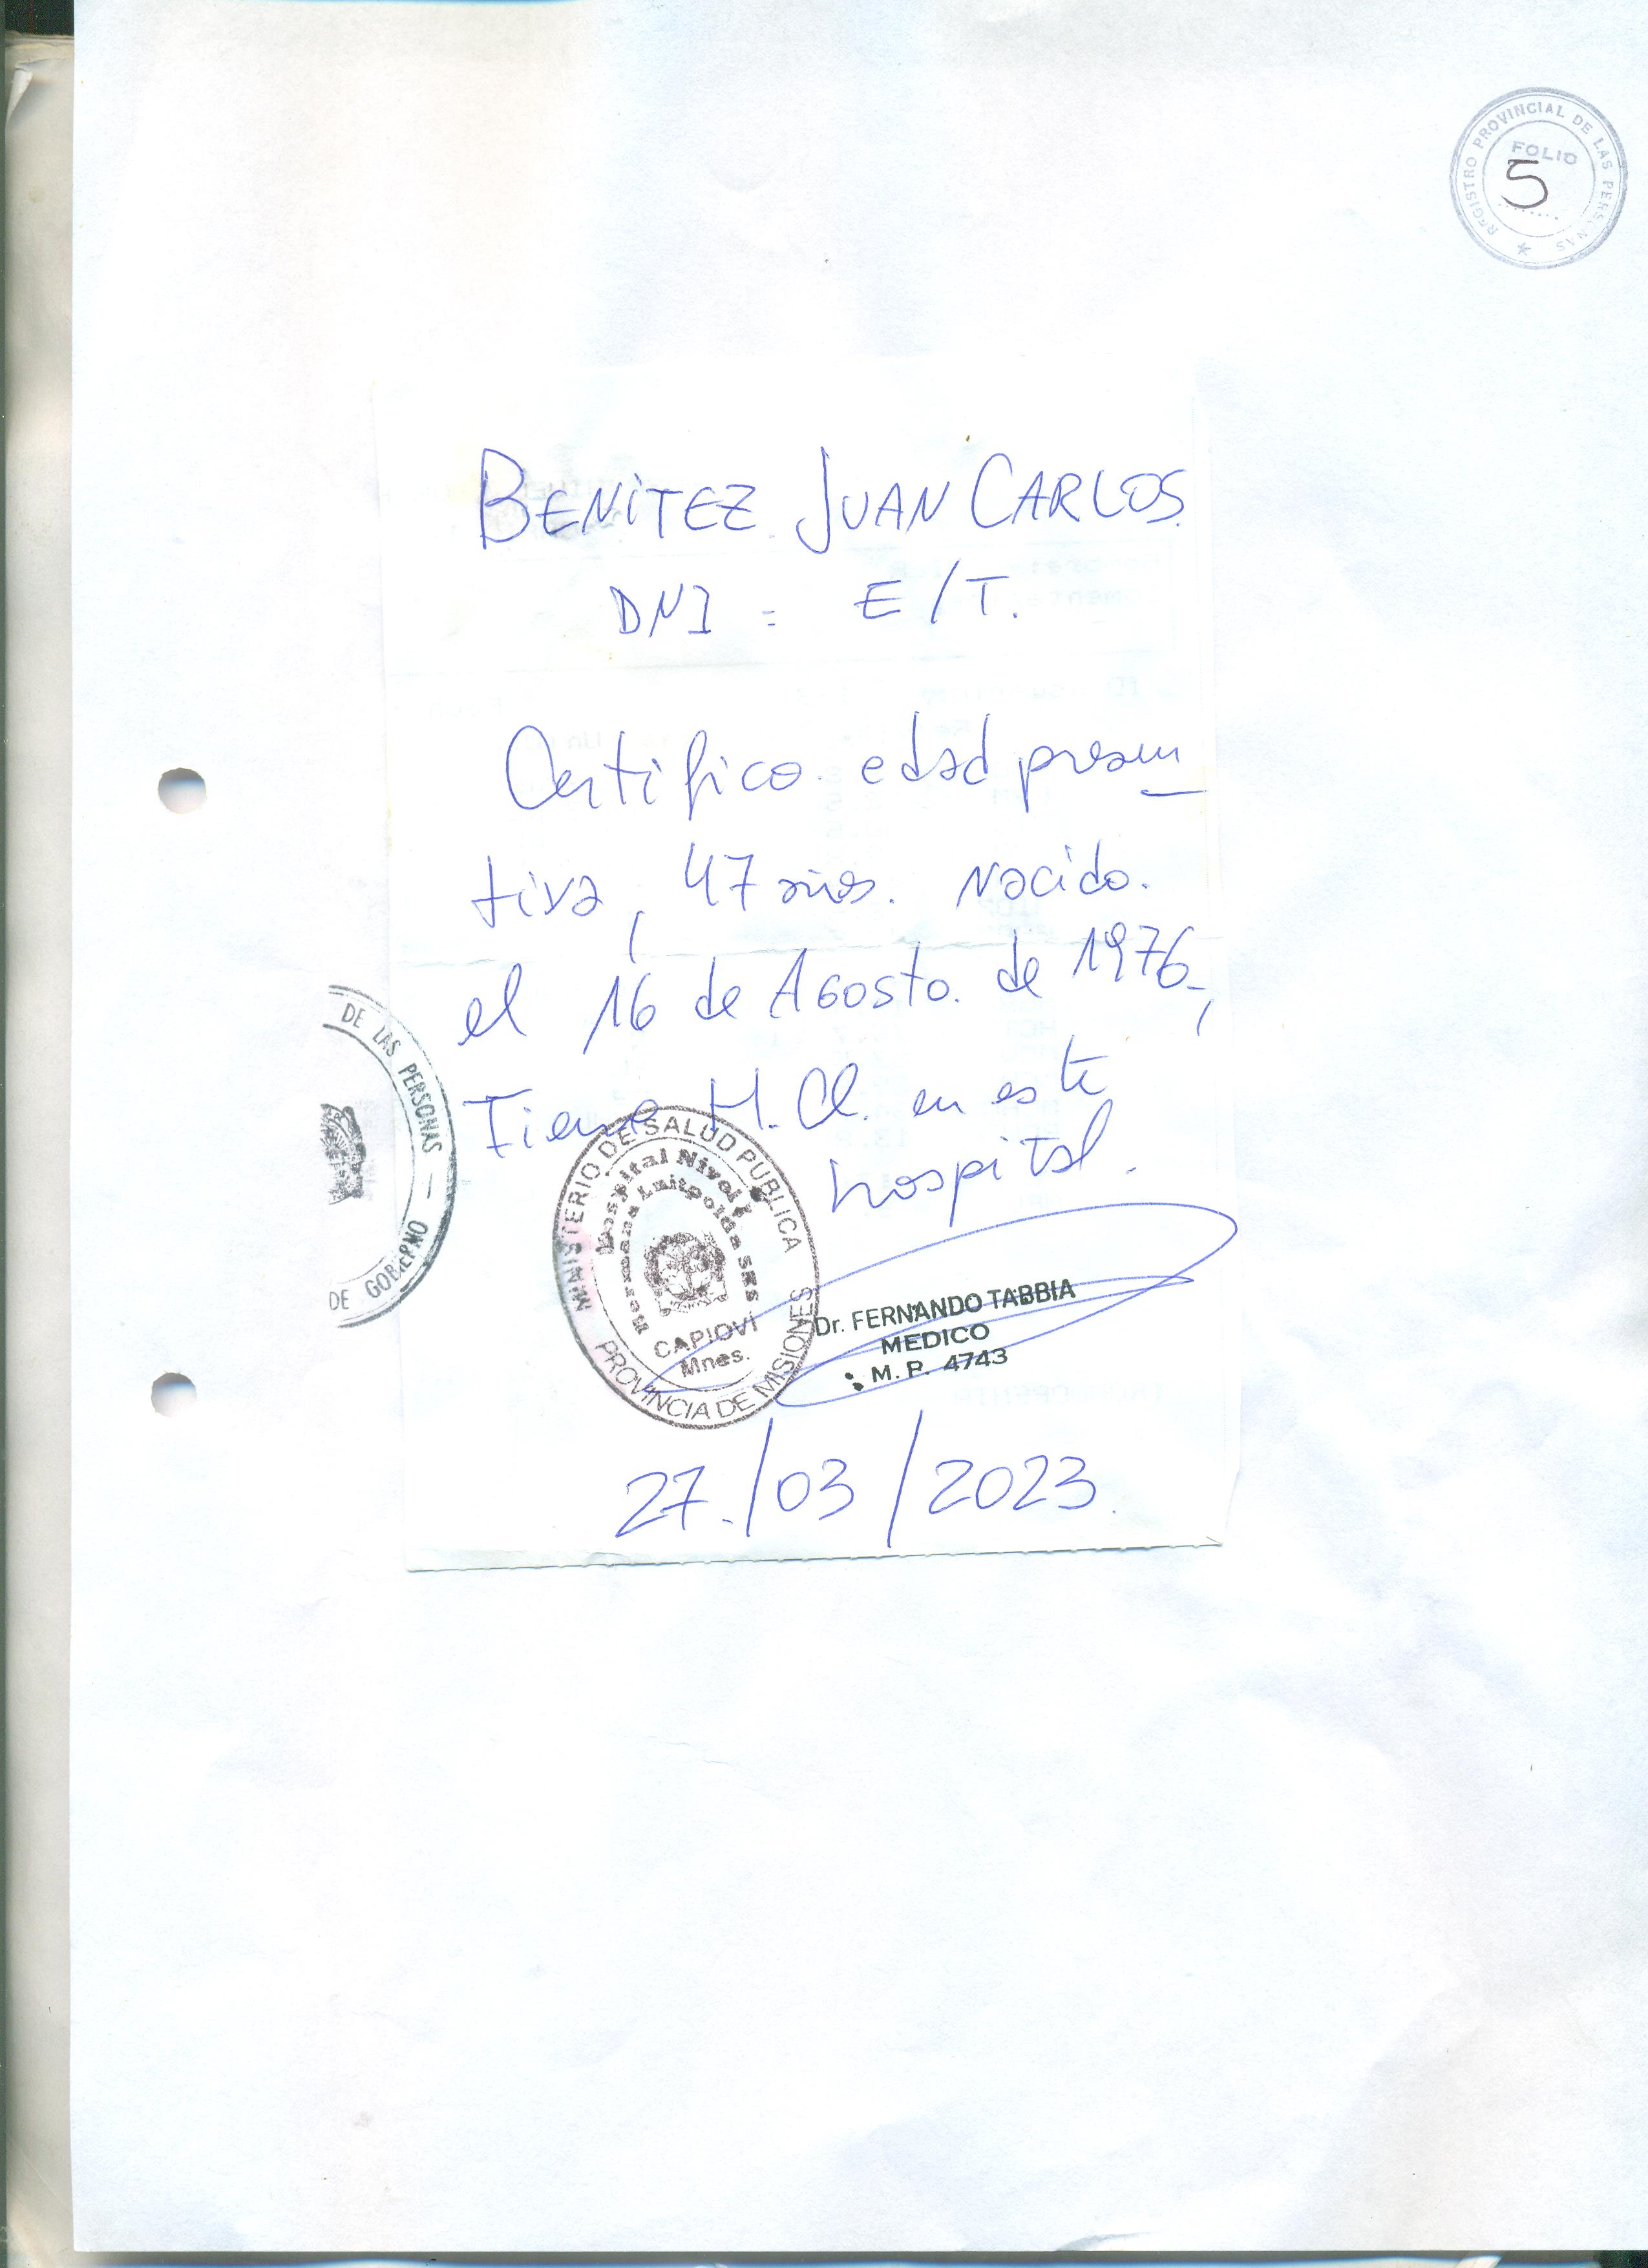 REGISTRO PROVINCIAL DE LAS PERSONAS
FOLIO
5
BENÍTEZ JUAN CARLOS.
DNI = E/T.
Certifico edad presun
tiva, 47 años. Nacido.
el 16 de Agosto. de 1976-,
Tiene H.Cl. en este
hospital.
DE LAS PERSONAS —
DE GOBIERNO
MINISTERIO DE SALUD PUBLICA
Hospital Nivel I
Hermana Luitpolda SRS
CAPIOVI
Mnes.
PROVINCIA DE MISIONES
Dr. FERNANDO TABBIA
MEDICO
M. P. 4743
27./03/2023.